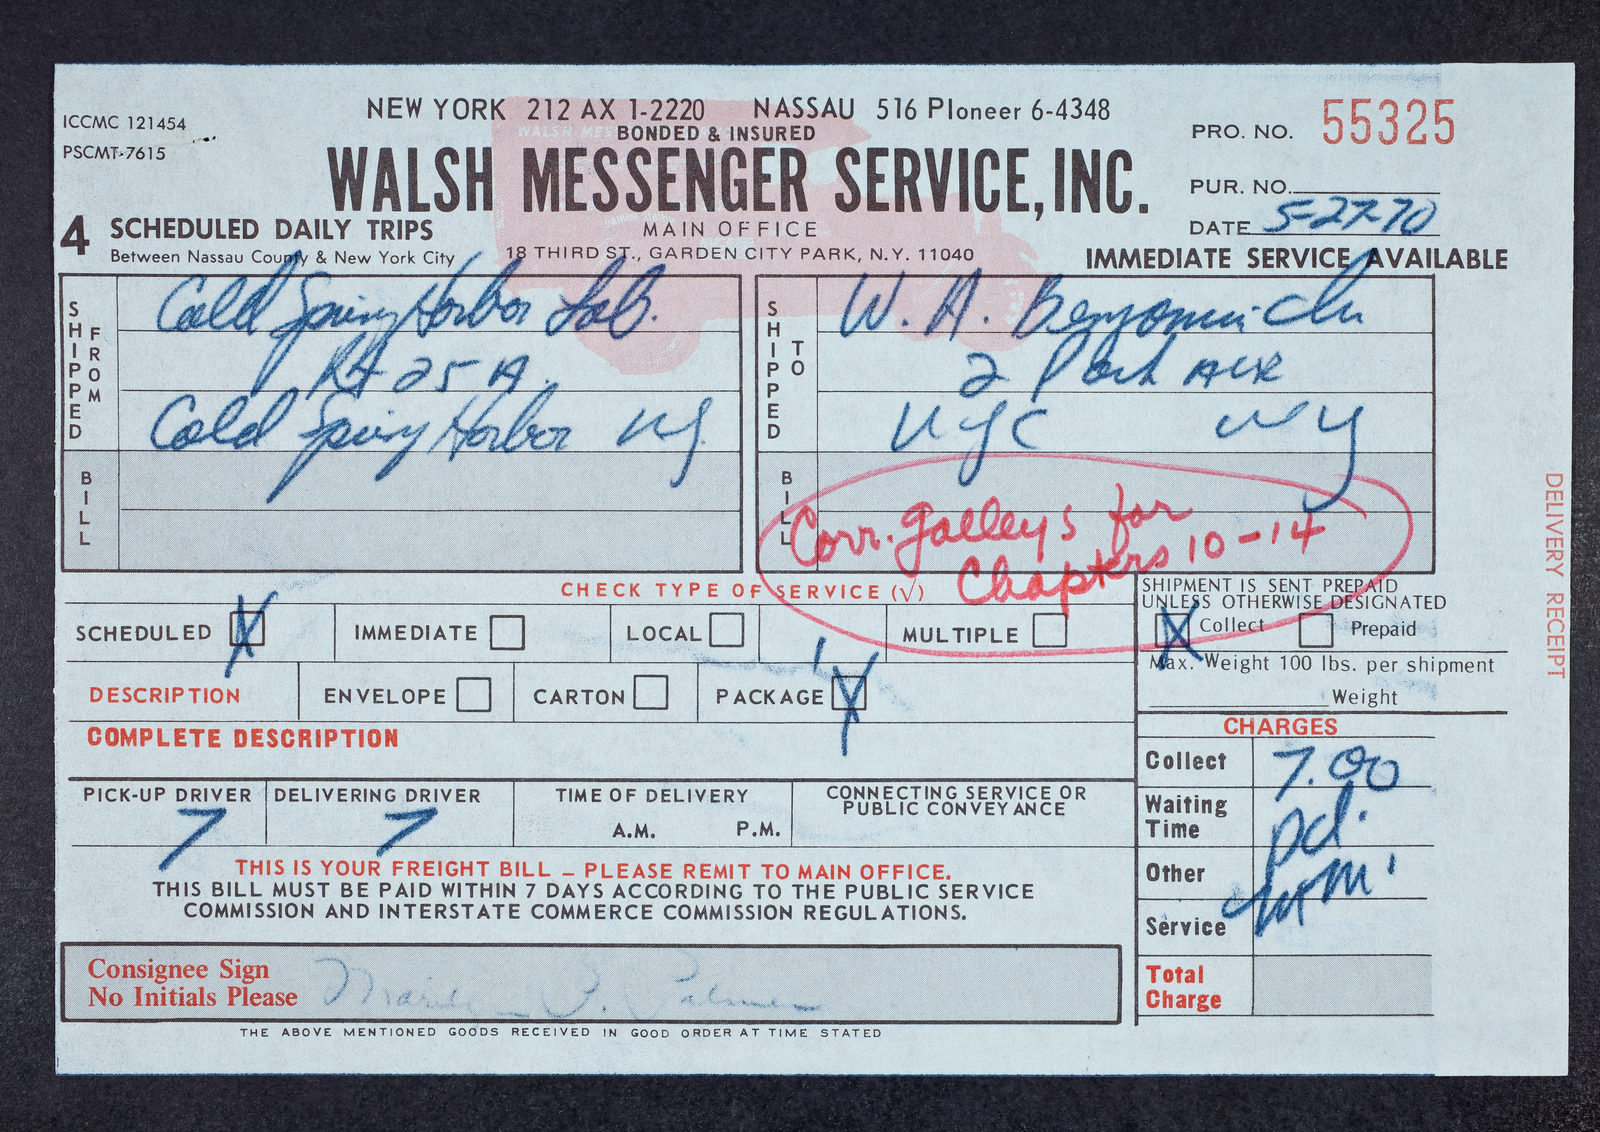 ICCMC 121454
PSCMT-7615
NEW YORK 212 AX 1-2220 NASSAU 516 PIoneer 6-4348
BONDED & INSURED
WALSH MESSENGER SERVICE, INC.
MAIN OFFICE
18 THIRD ST., GARDEN CITY PARK, N.Y. 11040
4 SCHEDULED DAILY TRIPS
Between Nassau County & New York City
PRO. NO. 55325
PUR. NO.
DATE 5-27-70
IMMEDIATE SERVICE AVAILABLE
SHIPPED FROM
Cold Spring Harbor Lab.
Rt 25 A.
Cold Spring Harbor NY.
BILL
SHIPPED TO
W. A. Benjamin
2 Park Ave
NYC NY
BILL
Corr. galleys for
Chapters 10-14
CHECK TYPE OF SERVICE (√)
SCHEDULED X IMMEDIATE LOCAL MULTIPLE
SHIPMENT IS SENT PREPAID
UNLESS OTHERWISE DESIGNATED
X Collect Prepaid
Max. Weight 100 lbs. per shipment
Weight
DESCRIPTION ENVELOPE CARTON PACKAGE X
COMPLETE DESCRIPTION
CHARGES
Collect 7.00
Waiting Time pd.
Other
Service
Total Charge
PICK-UP DRIVER 7
DELIVERING DRIVER 7
TIME OF DELIVERY
A.M. P.M.
CONNECTING SERVICE OR
PUBLIC CONVEYANCE
THIS IS YOUR FREIGHT BILL – PLEASE REMIT TO MAIN OFFICE.
THIS BILL MUST BE PAID WITHIN 7 DAYS ACCORDING TO THE PUBLIC SERVICE
COMMISSION AND INTERSTATE COMMERCE COMMISSION REGULATIONS.
Consignee Sign
No Initials Please
THE ABOVE MENTIONED GOODS RECEIVED IN GOOD ORDER AT TIME STATED
DELIVERY RECEIPT